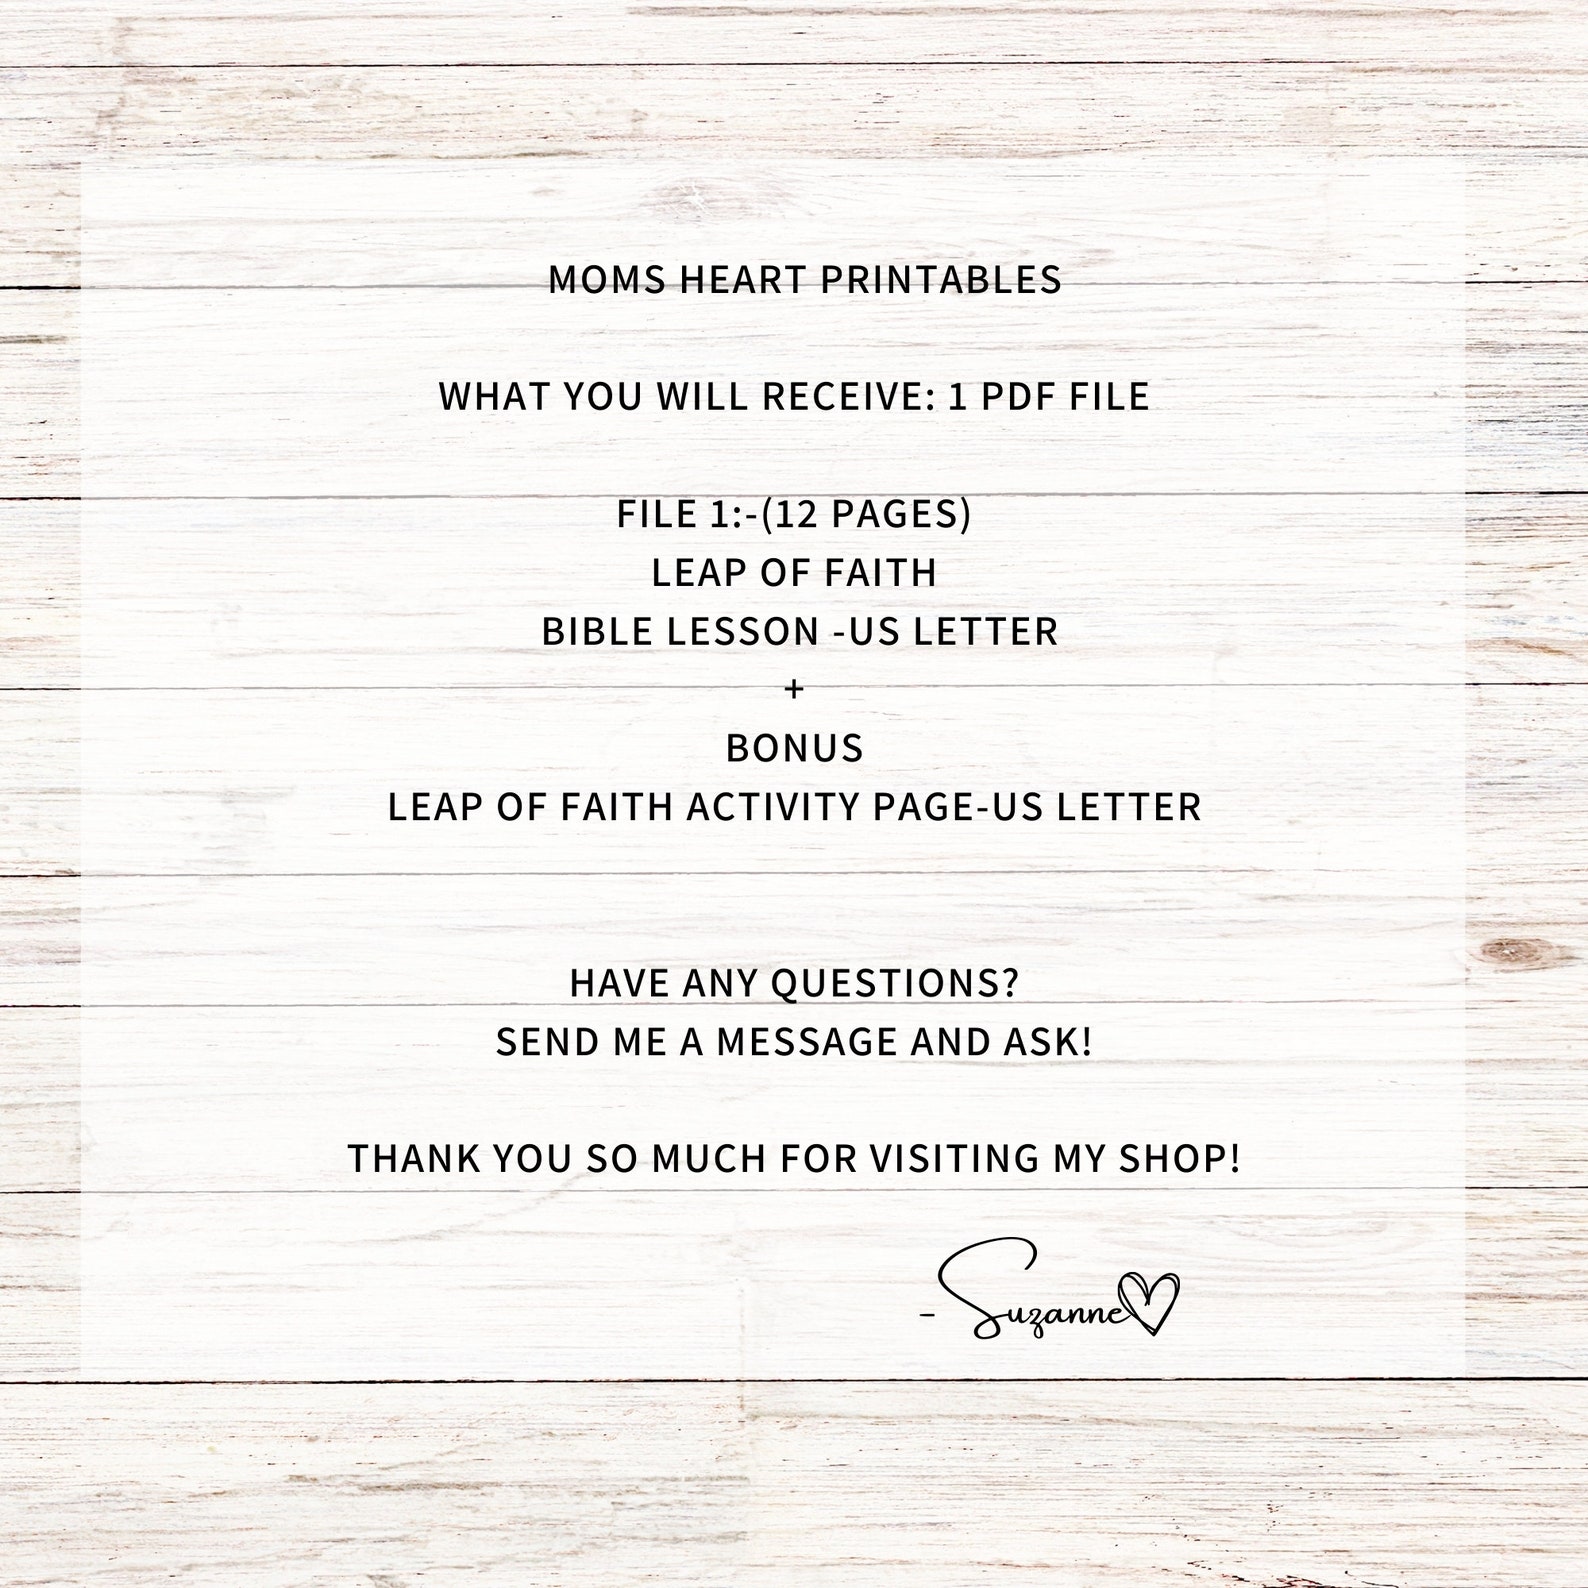 MOMS HEART PRINTABLES
WHAT YOU WILL RECEIVE: 1 PDF FILE
FILE 1:-(12 PAGES)
LEAP OF FAITH
BIBLE LESSON -US LETTER
+
BONUS
LEAP OF FAITH ACTIVITY PAGE-US LETTER
HAVE ANY QUESTIONS?
SEND ME A MESSAGE AND ASK!
THANK YOU SO MUCH FOR VISITING MY SHOP!
-Suzanne